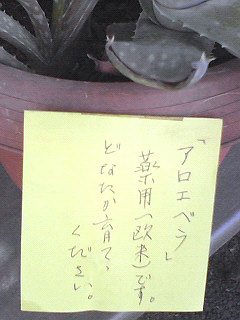 「アロエベラ」
薬用(欧米)です。
どなたか育て、
ください。